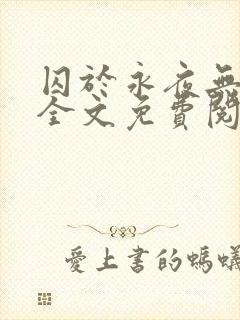 囚於永夜無
全文免費閱
愛上書的螞蟻